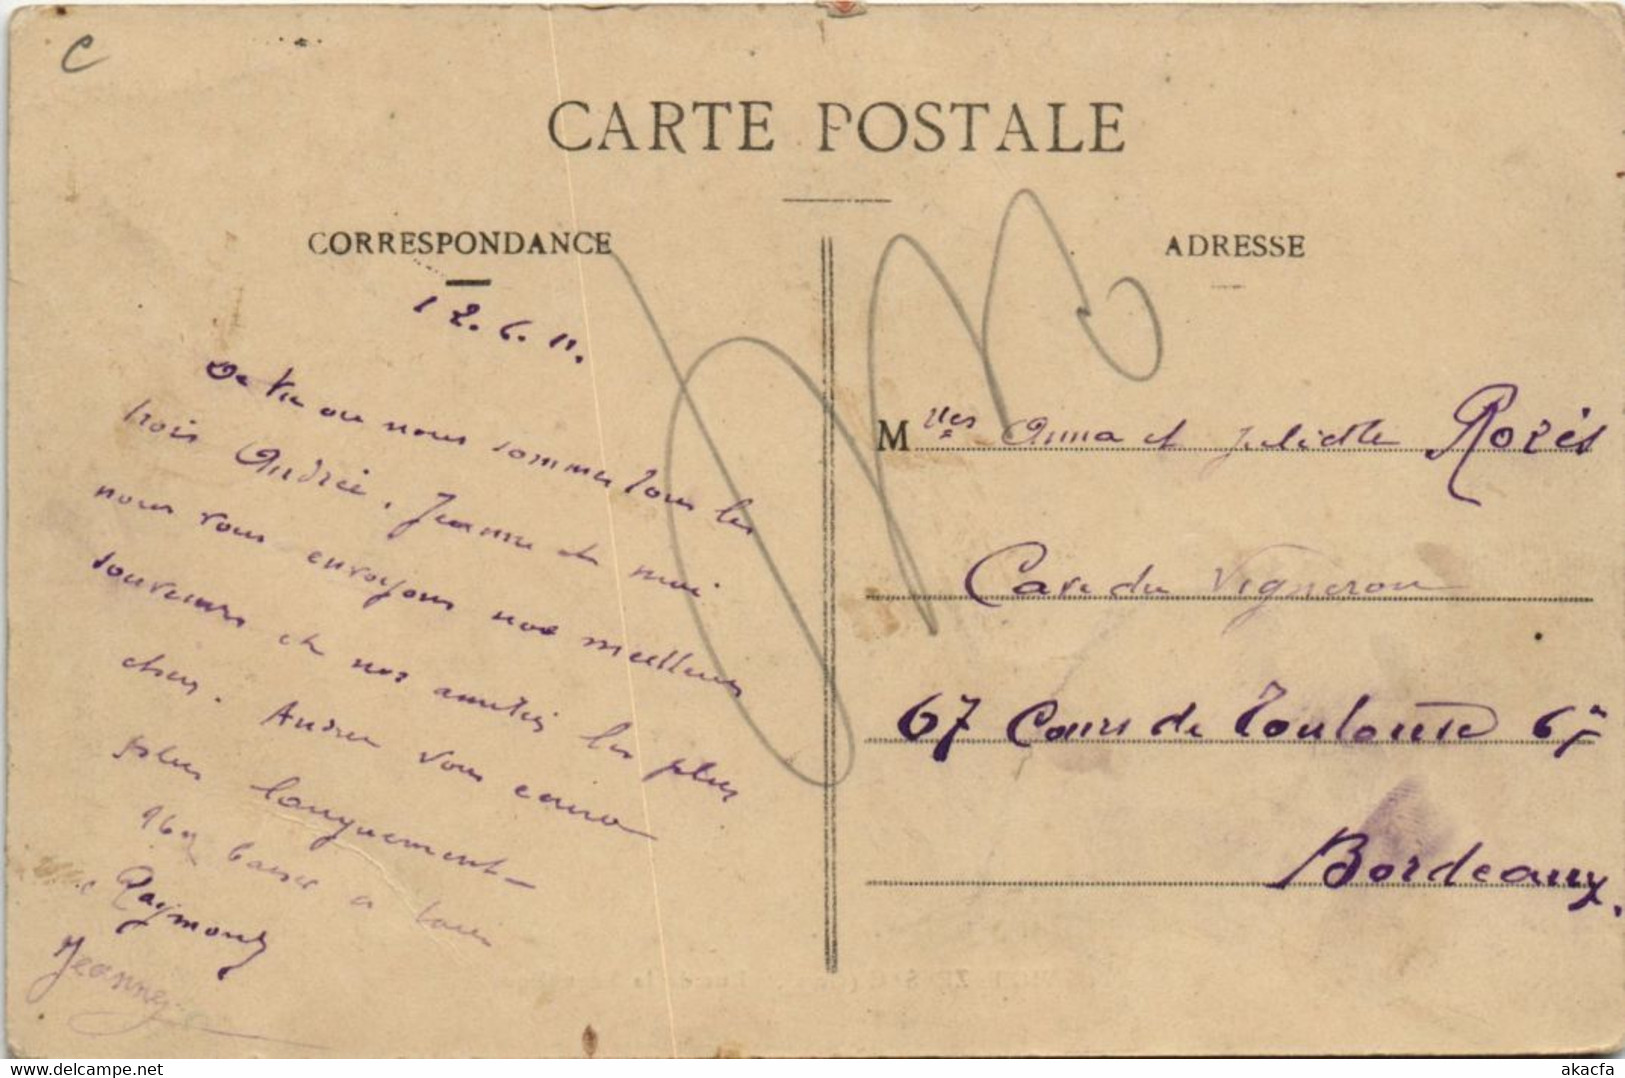 C
CARTE POSTALE
CORRESPONDANCE
ADRESSE
12.6.11.
De Vic où nous sommes tous les
trois Andrée, Jeanne et moi
nous vous envoyons nos meilleurs
souvenirs et nos amitiés les plus
chers. Andrée vous écrira
plus longuement
baiser à tous
Raymond
Jeanney
Mlles Anna et Juliette Rozès
Cave du Vigneron
67 Cours de Toulouse 67
Bordeaux.
www.delcampe.net
akacfa